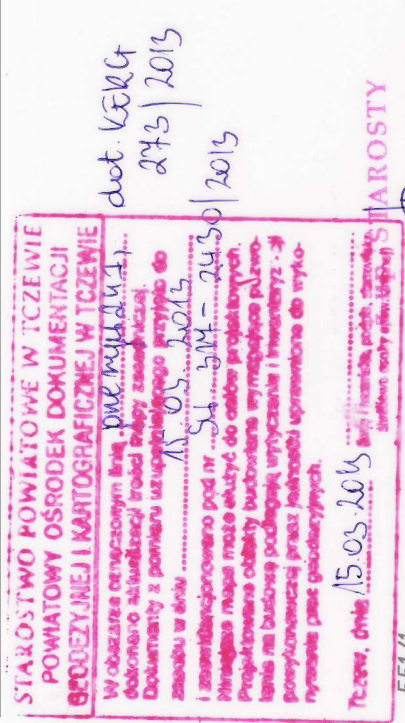 STAROSTWO POWIATOWE W TCZEWIE
POWIATOWY OŚRODEK DOKUMENTACJI
GEODEZYJNEJ I KARTOGRAFICZNEJ W TCZEWIE
W obszarze oznaczonym linią
dokonano aktualizacji treści mapy zasadniczej.
Dokumenty z pomiaru uzupełniającego przyjęto do
zasobu w dniu 15.03.2013
i zaewidencjonowano pod nr 2430/2013
Niniejsza mapa może służyć do celów projektowych.
Projektowane obiekty budowlane wymagające pozwo-
lenia na budowę podlegają wytyczeniu i inwentaryz-cji
powykonawczej przez jednostki uprawnione do wyko-
nywania prac geodezyjnych.
Tczew, dnia 15.03.2013
dot. KERG
273/2013
STAROSTY